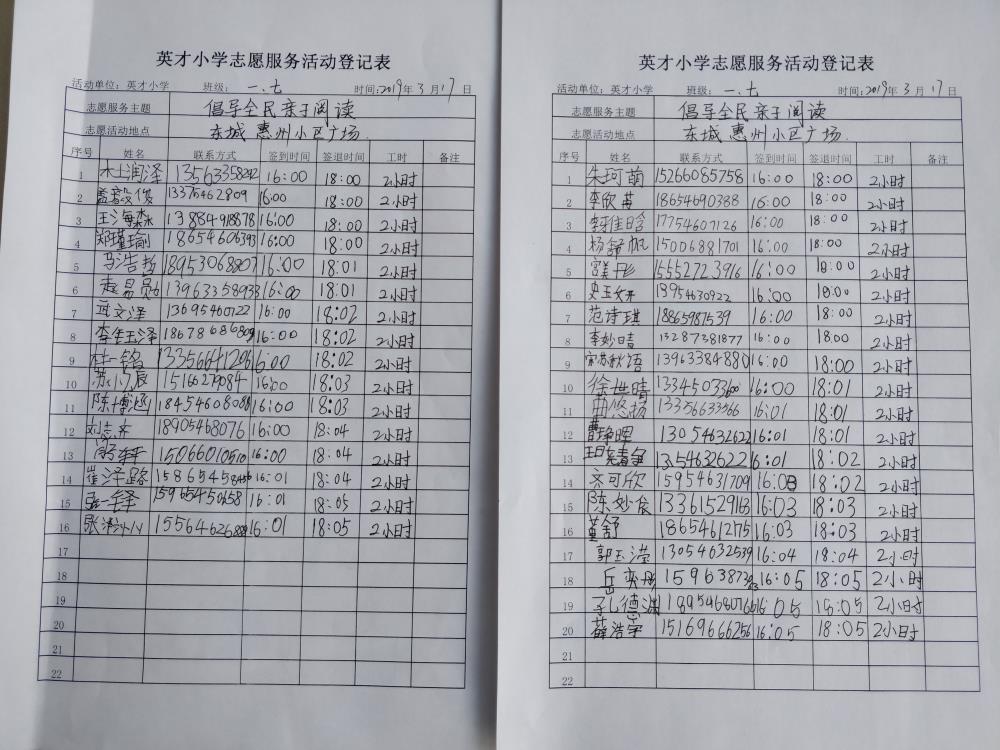 英才小学志愿服务活动登记表
活动单位：英才小学 班级：一.七 时间：2019年3月17日
志愿服务主题 倡导全民亲子阅读
志愿活动地点 东城 惠州小区广场
序号 姓名 联系方式 签到时间 签退时间 工时 备注
1 16:00 18:00 2小时
2 13375462809 16:00 18:00 2小时
3 王海森 13884918878 16:00 18:00 2小时
4 郑瑾瑜 18654606393 16:00 18:00 2小时
5 马浩哲 18953068807 16:00 18:01 2小时
6 13963358938 16:00 18:01 2小时
7 文泽 13695460122 16:00 18:02 2小时
8 16:00 18:02 2小时
9 杜一铭 13356641206 16:00 18:02 2小时
10 苏小辰 15166279084 16:00 18:03 2小时
11 陈博涵 18454608088 16:00 18:03 2小时
12 18905468076 16:00 18:04 2小时
13 15066010510 16:00 18:04 2小时
14 崔泽路 16:01 18:04 2小时
15 15965450658 16:01 18:05 2小时
16 16:01 18:05 2小时
17
18
19
20
21
22
英才小学志愿服务活动登记表
活动单位：英才小学 班级：一.七 时间：2019年3月17日
志愿服务主题 倡导全民亲子阅读
志愿活动地点 东城 惠州小区广场
序号 姓名 联系方式 签到时间 签退时间 工时 备注
1 朱珂萌 15266085758 16:00 18:00 2小时
2 李欣苒 18654690388 16:00 18:00 2小时
3 李佳晗 17754607126 16:00 18:00 2小时
4 杨舒帆 15006881701 16:00 18:00 2小时
5 15552723916 16:00 18:00 2小时
6 史玉妍 13954630922 16:00 18:00 2小时
7 范诗琪 18865987539 16:00 18:00 2小时
8 李妙晴 13287381877 16:00 18:00 2小时
9 宋苏秋语 13963384880 16:00 18:00 2小时
10 徐世晴 16:00 18:01 2小时
11 曲悠扬 13356633366 16:01 18:01 2小时
12 曹琤晖 13054632622 16:01 18:01 2小时
13 16:01 18:02 2小时
14 齐可欣 15954631709 16:03 18:02 2小时
15 陈妙含 13361529163 16:03 18:03 2小时
16 董舒 18654612175 16:03 18:03 2小时
17 郭玉滢 13054632539 16:04 18:04 2小时
18 岳奕彤 16:05 18:05 2小时
19 孔德渊 16:05 18:05 2小时
20 薛浩宇 15169666256 16:05 18:05 2小时
21
22